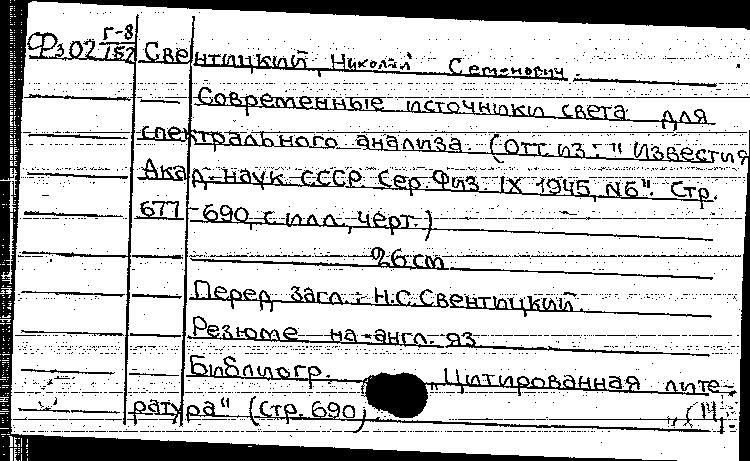 Фз.02 Г-8/152 Свентицкий, Николай Семенович.
— Современные источники света для
спектрального анализа. (Отт. из: "Известия
Акад. наук СССР. Сер. Физ. IX 1945, №6". Стр.
677-690, с илл., черт.)
26 см
Перед загл.: Н.С. Свентицкий.
Резюме на англ. яз.
Библиогр. "Цитированная лите-
ратура" (стр. 690)